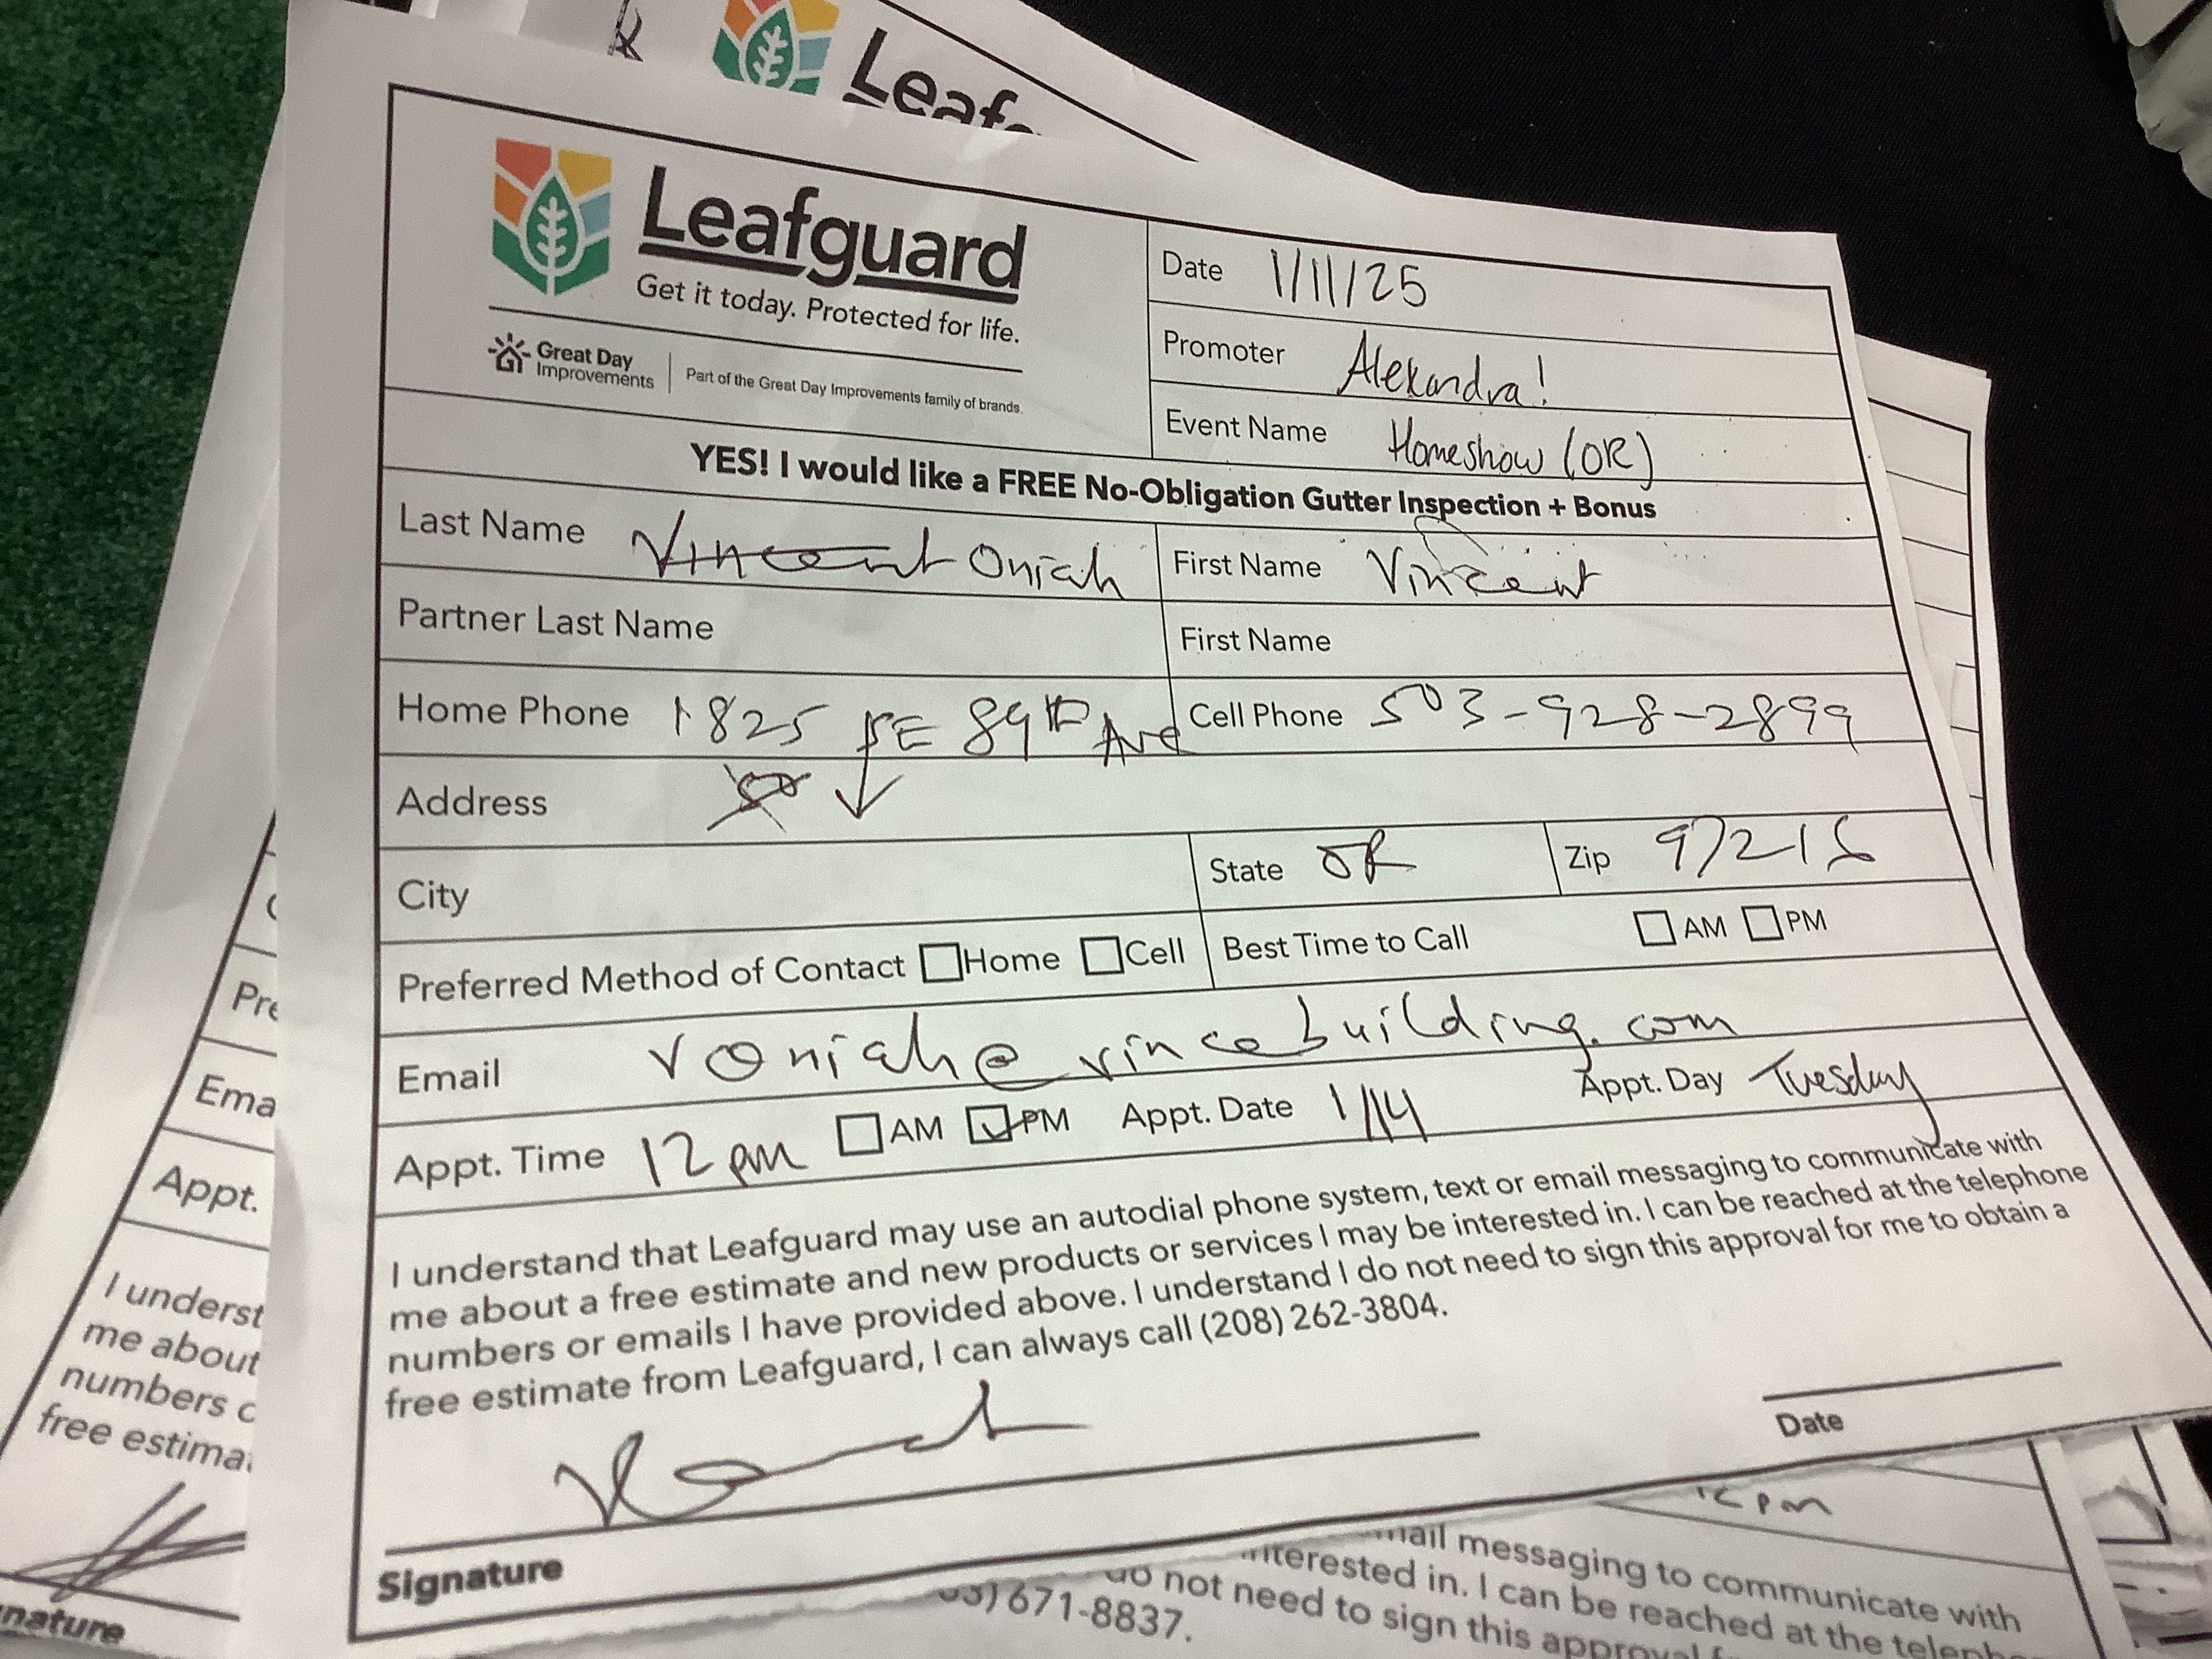 Leafg
Leafguard
Get it today. Protected for life.
Great Day
Improvements
Part of the Great Day Improvements family of brands.
Date 1/11/25
Promoter Alexandra!
Event Name Homeshow (OR)
YES! I would like a FREE No-Obligation Gutter Inspection + Bonus
Last Name Vincent Oniah First Name Vincent
Partner Last Name First Name
Home Phone 1825 SE 89th Ave Cell Phone 503-928-2899
Address
City State OR Zip 97216
Preferred Method of Contact Home Cell Best Time to Call AM PM
Email voniah@vincebuilding.com
Appt. Time 12pm AM PM Appt. Date 1/14 Appt. Day Tuesday
I understand that Leafguard may use an autodial phone system, text or email messaging to communicate with
me about a free estimate and new products or services I may be interested in. I can be reached at the telephone
numbers or emails I have provided above. I understand I do not need to sign this approval for me to obtain a
free estimate from Leafguard, I can always call (208) 262-3804.
Signature
Date
Pre
Ema
Appt.
I underst
me about
numbers o
free estima
nature
12 pm
mail messaging to communicate with
interested in. I can be reached at the teleph
do not need to sign this approval f
03) 671-8837.